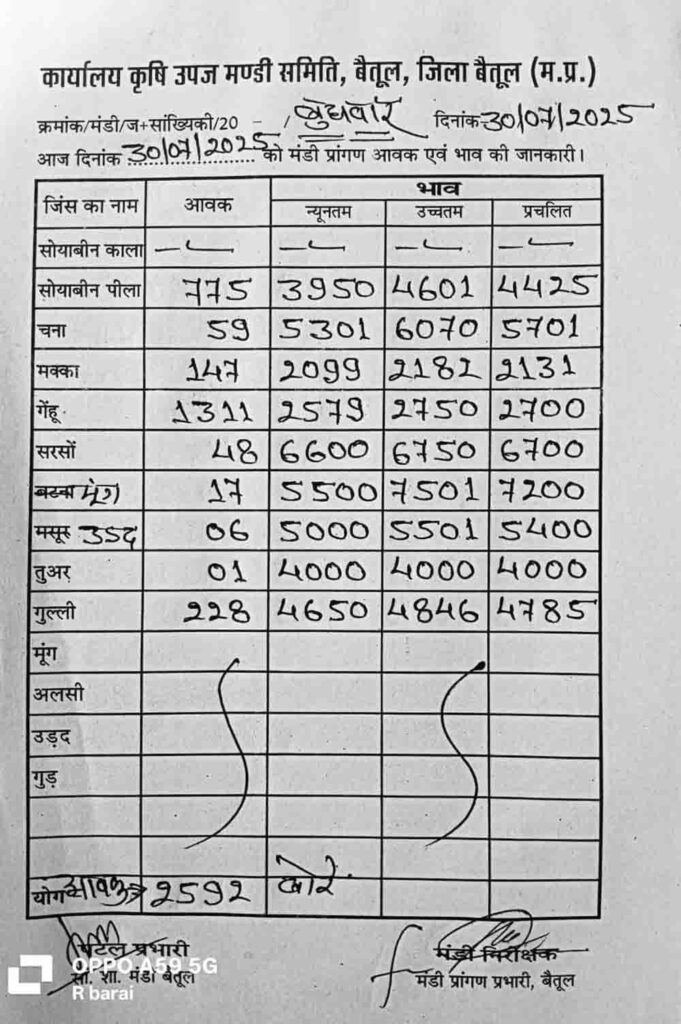 कार्यालय कृषि उपज मण्डी समिति, बैतूल, जिला बैतूल (म.प्र.)
क्रमांक/मंडी/ज+सांख्यिकी/20 - / बुधवार दिनांक 30/07/2025
आज दिनांक 30/07/2025 को मंडी प्रांगण आवक एवं भाव की जानकारी।
जिंस का नाम आवक भाव
न्यूनतम उच्चतम प्रचलित
सोयाबीन काला — — — —
सोयाबीन पीला 775 3950 4601 4425
चना 59 5301 6070 5701
मक्का 147 2099 2182 2131
गेंहू 1311 2579 2750 2700
सरसों 48 6600 6750 6700
बटवा मूंग 17 5500 7501 7200
मसूर उडद 06 5000 5501 5400
तुअर 01 4000 4000 4000
गुल्ली 228 4650 4846 4785
मूंग
अलसी
उड़द
गुड़
योग आवक → 2592 बोरे
पटेल प्रभारी मंडी निरीक्षक
सां. शा. मंडी बैतूल मंडी प्रांगण प्रभारी, बैतूल
OPPO A59 5G
R barai